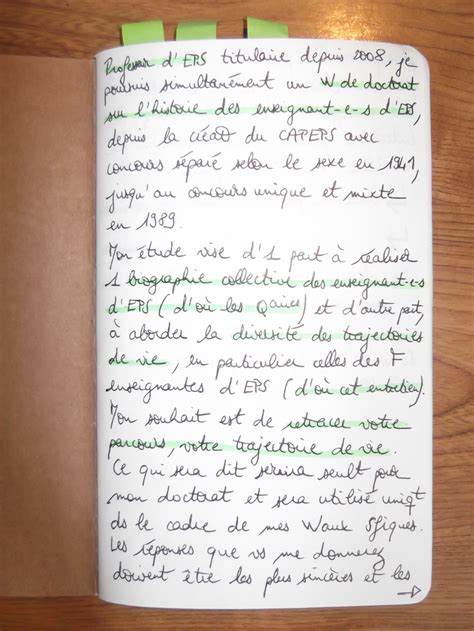 Professeur d'EPS titulaire depuis 2008, je
poursuis simultanément un W de doctorat
sur l'histoire des enseignant-e-s d'EPS,
depuis la créat° du CAPEPS avec
concours séparé selon le sexe en 1941,
jusqu'au concours unique et mixte
en 1989.
Mon étude vise d'1 part à réaliser
1 biographie collective des enseignant-e-s
d'EPS (d'où les Qaires) et d'autre part,
à aborder la diversité des trajectoires
de vie, en particulier celles des F
enseignantes d'EPS (d'où cet entretien).
Mon souhait est de retracer votre
parcours, votre trajectoire de vie.
Ce qui sera dit servira seult pour
mon doctorat et sera utilisé uniqt
ds le cadre de mes Waux Sfiques.
Les réponses que vs me donnerez
doivent être les plus sincères et les
→